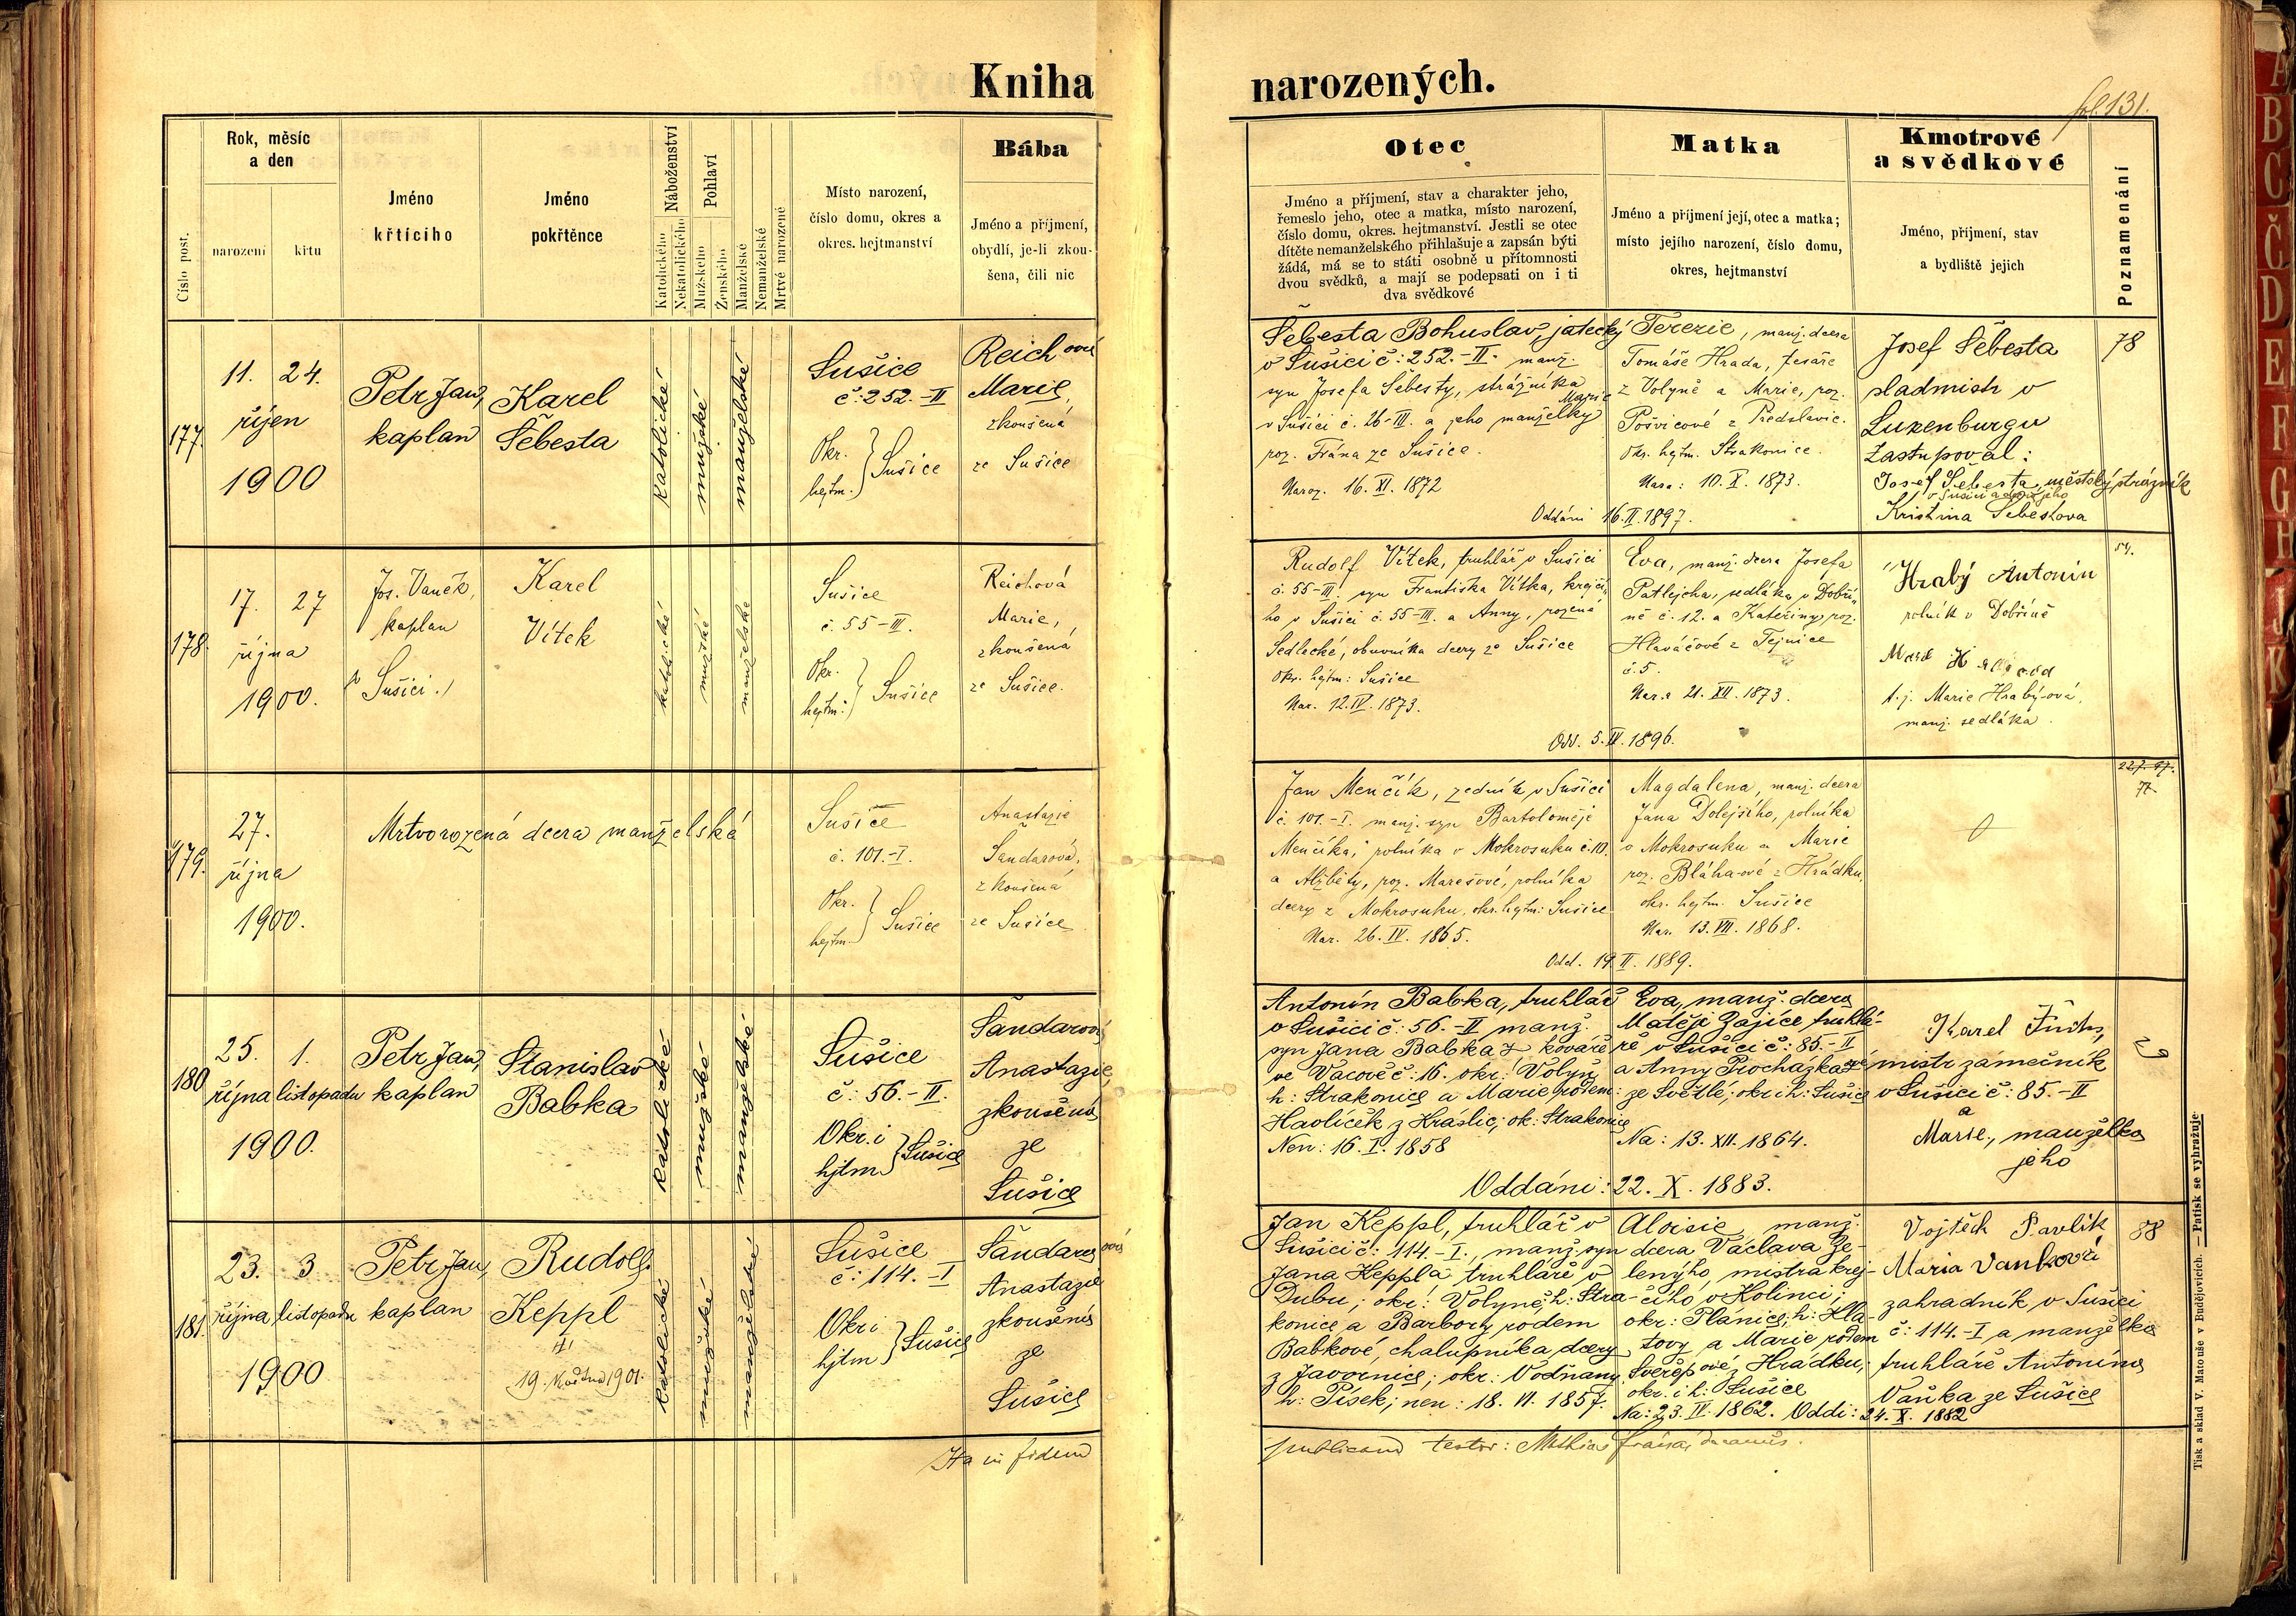 Kniha narozených.
fol. 131.
Číslo post.
Rok, měsíc
a den
narození
křtu
Jméno
křtícího
Jméno
pokřtěnce
Náboženství
Katolického
Nekatolického
Pohlaví
Mužského
Ženského
Manželské
Nemanželské
Mrtvě narozené
Místo narození,
číslo domu, okres a
okres. hejtmanství
Bába
Jméno a příjmení,
obydlí, je-li zkou-
šena, čili nic
Otec
Jméno a příjmení, stav a charakter jeho,
řemeslo jeho, otec a matka, místo narození,
číslo domu, okres. hejtmanství. Jestli se otec
dítěte nemanželského přihlašuje a zapsán býti
žádá, má se to státi osobně u přítomnosti
dvou svědků, a mají se podepsati on i ti
dva svědkové
Matka
Jméno a příjmení její, otec a matka;
místo jejího narození, číslo domu,
okres, hejtmanství
Kmotrové
a svědkové
Jméno, příjmení, stav
a bydliště jejich
Poznamenání
177.
11. 24.
říjen
1900
Petr Jan,
kaplan
Karel
Šebesta
katolické
mužské
manželské
Sušice
č: 252.-II
Okr.
hejtm. } Sušice
Reichová
Marie,
zkoušená
ze Sušice
Šebesta Bohuslav, jatecký
v Sušici č: 252.-II. manž.
syn Josefa Šebesty, strážníka
v Sušici č. 26-III. a jeho manželky Marie
roz. Frána ze Sušice.
Naroz. 16. XI. 1872
Terezie, manž. dcera
Tomáše Hrada, tesaře
z Volyně a Marie, roz.
Pošvicové z Předslavic.
Okr. hejtm. Strakonice.
Nara: 10. X. 1873.
Oddáni 16. II. 1897.
Josef Šebesta
sladmistr v
Luxenburgu
Zastupoval:
Josef Šebesta, městský strážník
v Sušici a dcera jeho
Kristina Šebestova
78
178.
17. 27
října
1900.
Jos. Vaněk,
kaplan
v Sušici.
Karel
Vítek
katolické
mužské
manželské
Sušice
č. 55-III.
Okr.
hejtm: } Sušice
Reichová
Marie,
zkoušená
ze Sušice.
Rudolf Vítek, truhlář v Sušici
č. 55-III. syn Františka Vítka, krejčí-
ho v Sušici č. 55-III. a Anny, rozená
Sedlecké, obuvníka dcery ze Sušice
Okr. hejtm: Sušice
Nar. 12. IV. 1873.
Eva, manž. dcera Josefa
Patlejcha, sedláka v Dobři-
ně č. 12. a Kateřiny, roz.
Hlaváčové z Tejnice
č. 5.
Nar. 21. XII. 1873.
Odd. 5. 1896.
Hrabý Antonín
rolník v Dobříně
t.j. Marie Hrabý-ová,
manž. sedláka.
54.
179.
27.
října
1900.
Mrtvorozená dcera manželská
Sušice
č. 101.-I.
Okr.
hejtm. } Sušice
Anastazie
Šandarová,
zkoušená
ze Sušice
Jan Menčík, zedník v Sušici
č. 101.-I. manž. syn Bartoloměje
Menčíka, rolníka v Mokrosuku č. 10.
a Alžběty, roz. Marešové, rolníka
dcery z Mokrosuku, okr. hejtm: Sušice
Nar. 26. IV. 1865.
Magdalena, manž. dcera
Jana Dolejšího, rolníka
v Mokrosuku a Marie
roz. Bláhaové z Hrádku,
okr. hejtm. Sušice
Nar. 13. VII. 1868.
Odd. 19. II. 1889.
180.
25. 1.
října listopadu
1900.
Petr Jan,
kaplan
Stanislav
Babka
katolické
mužské
manželské
Sušice
č: 56.-II.
Okr. i
hjtm } Sušice
Šandarová
Anastazie,
zkoušená
ze
Sušice
Antonín Babka, truhlář
v Sušici č: 56.-II manž.
syn Jana Babka, kováře
ve Vacově č: 16. okr: Volyn
h: Strakonice a Marie rodem:
Havlíček z Kraslic; ok: Strakonice
Nen: 16. I. 1858
Eva, manž. dcera
Matěje Zajíce, truhlá-
ře v Sušici č: 85.-II
a Anny Procházkové
ze Světlé; okr. i h: Sušice
Na: 13. XII. 1864.
Oddáni: 22. X. 1883.
Karel Fuchs,
mistr zámečník
v Sušici č: 85.-II
a
Marie, manželka
jeho
29
181.
23. 3
října listopadu
1900
Petr Jan,
kaplan
Rudolf
Keppl
19. 1901.
katolické
mužské
manželské
Sušice
č: 114.-I
Okr. i
hjtm } Sušice
Šandarová
Anastazie
zkoušená
ze
Sušice
Jan Keppl, truhlář v
Sušici č: 114.-I., manž. syn
Jana Keppla truhláře v
Dubu; okr: Volyně; h: Stra-
konice a Barbory rodem
Babkové, chalupníka dcery
z Javornice; okr: Vodňany
h: Písek; nen: 18. VI. 1857.
Aloisie, manž.
dcera Václava Ze-
lenýho, mistra krej-
čího v Kolinci;
okr: Plánice; h: Kla-
tovy a Marie rodem
Svěřepové z Hrádku;
okr. i h: Sušice
Na: 23. IV. 1862. Oddi: 24. X. 1882
Vojtěch Pavlík
Maria Vaňková
zahradník v Sušici
č: 114.-I a manželka
truhláře Antonína
Vaňka ze Sušice
88
Ita in fidem
publicam testor: Mathias
Tisk a sklad V. Matouše v Budějovicích. — Patisk se vyhražuje.
A
B
C
Č
D
E
F
G
H
J
K